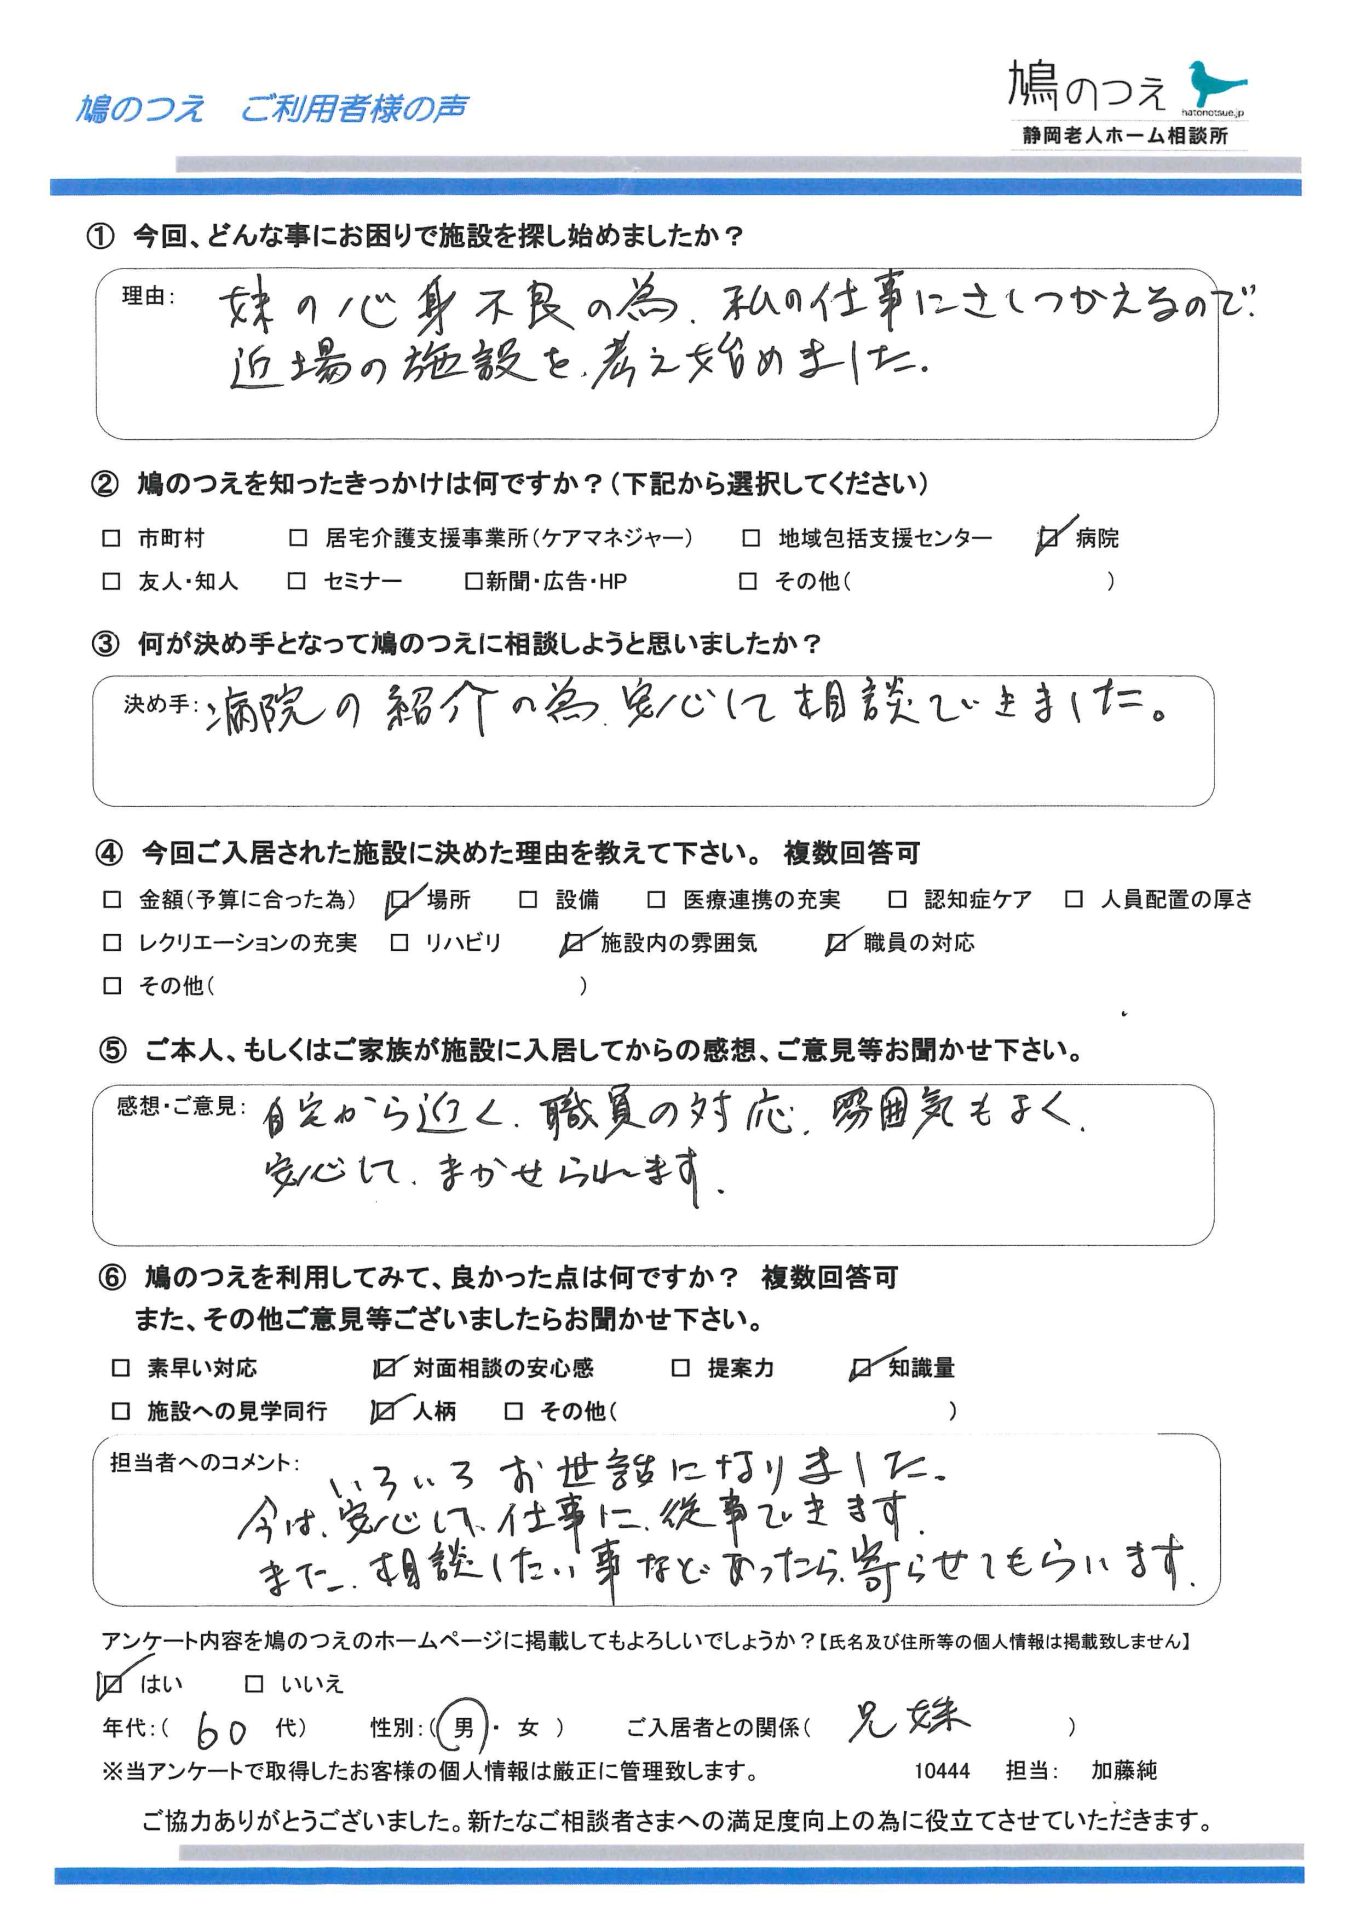 鳩のつえ　ご利用者様の声
鳩のつえ
hatonotsue.jp
静岡老人ホーム相談所
① 今回、どんな事にお困りで施設を探し始めましたか？
理由： 妹の心身不良の為、私の仕事にさしつかえるので、
近場の施設を、考え始めました。
② 鳩のつえを知ったきっかけは何ですか？（下記から選択してください）
□ 市町村 □ 居宅介護支援事業所（ケアマネジャー） □ 地域包括支援センター ☑ 病院
□ 友人・知人 □ セミナー □新聞・広告・HP □ その他（ ）
③ 何が決め手となって鳩のつえに相談しようと思いましたか？
決め手： 病院の紹介の為、安心して相談できました。
④ 今回ご入居された施設に決めた理由を教えて下さい。 複数回答可
□ 金額（予算に合った為） ☑ 場所 □ 設備 □ 医療連携の充実 □ 認知症ケア □ 人員配置の厚さ
□ レクリエーションの充実 □ リハビリ ☑ 施設内の雰囲気 ☑ 職員の対応
□ その他（ ）
⑤ ご本人、もしくはご家族が施設に入居してからの感想、ご意見等お聞かせ下さい。
感想・ご意見： 自宅から近く、職員の対応、雰囲気もよく、
安心して、まかせられます。
⑥ 鳩のつえを利用してみて、良かった点は何ですか？ 複数回答可
また、その他ご意見等ございましたらお聞かせ下さい。
□ 素早い対応 ☑ 対面相談の安心感 □ 提案力 ☑ 知識量
□ 施設への見学同行 ☑ 人柄 □ その他（ ）
担当者へのコメント： いろいろお世話になりました。
今は、安心して、仕事に、従事できます。
また、相談したい事などあったら、寄らせてもらいます。
アンケート内容を鳩のつえのホームページに掲載してもよろしいでしょうか？【氏名及び住所等の個人情報は掲載致しません】
☑ はい □ いいえ
年代：（ 60 代） 性別：（ 男 ・ 女 ） ご入居者との関係（ 兄妹 ）
※当アンケートで取得したお客様の個人情報は厳正に管理致します。 10444 担当： 加藤純
ご協力ありがとうございました。新たなご相談者さまへの満足度向上の為に役立てさせていただきます。